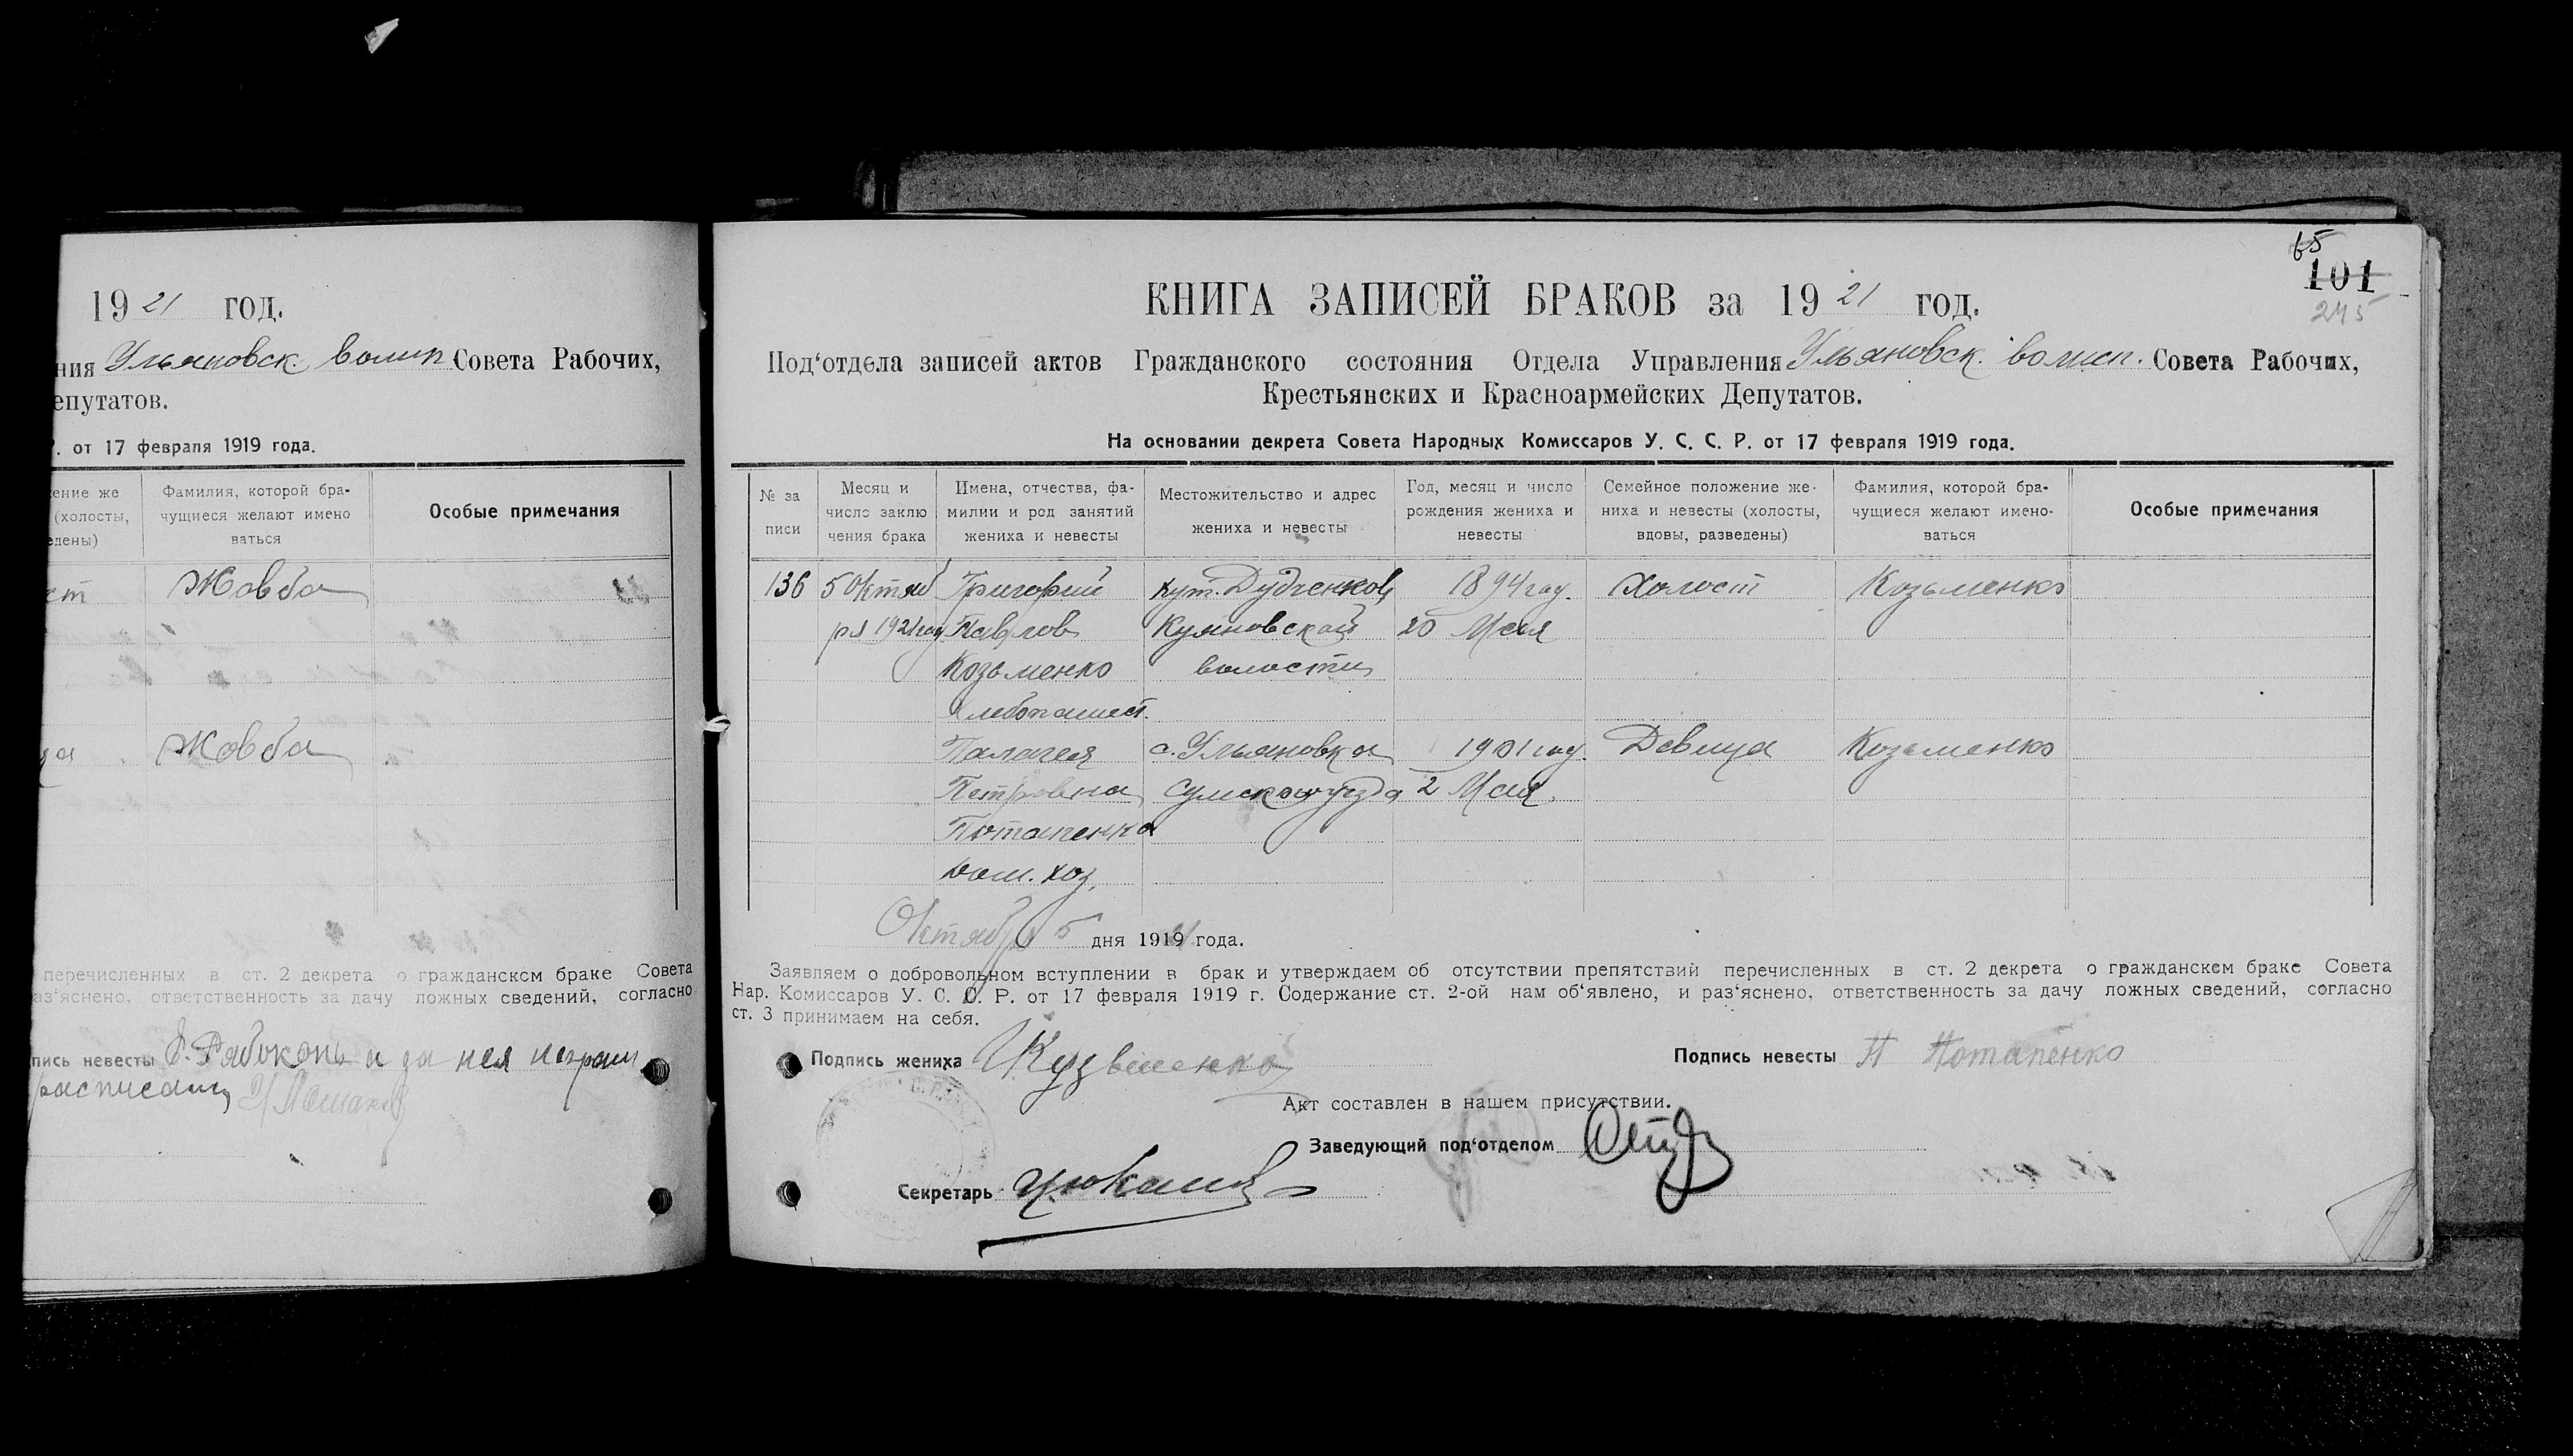 1921 год.
ния Ульяновск. волисп Совета Рабочих,
епутатов.
Р. от 17 февраля 1919 года.
ение же
(холосты,
едены)
Фамилия, которой бра-
чущиеся желают имено
ваться
Особые примечания
ст Жовба
ца Жовба
перечисленных в ст. 2 декрета о гражданском браке Совета
аз‘яснено, ответственность за дачу ложных сведений, согласно
пись невесты Рябоконь а за нея неграм.
расписался
65
101
245
КНИГА ЗАПИСЕЙ БРАКОВ за 1921 год.
Под‘отдела записей актов Гражданского состояния Отдела Управления Ульяновск. волисп. Совета Рабочих,
Крестьянских и Красноармейских Депутатов.
На основании декрета Совета Народных Комиссаров У. С. С. Р. от 17 февраля 1919 года.
№ за
писи
Месяц и
число заклю
чения брака
Имена, отчества, фа-
милии и род занятий
жениха и невесты
Местожительство и адрес
жениха и невесты
Год, месяц и число
рождения жениха и
невесты
Семейное положение же-
ниха и невесты (холосты,
вдовы, разведены)
Фамилия, которой бра-
чущиеся желают имено-
ваться
Особые примечания
136 5 Октяб Григорий хут. Дудченков 1894 году. Холост Козьменко
ря 1921 году Павлов Куяновской 20 Мая
Козьменко волости
хлебопашест.
Палагея с. Ульяновка 1901 году. Девица Козьменко
Петровна Сумского уезда 2 Мая
Потапенко
дом. хоз.
Октября 5 дня 1919 года.
Заявляем о добровольном вступлении в брак и утверждаем об отсутствии препятствий перечисленных в ст. 2 декрета о гражданском браке Совета
Нар. Комиссаров У. С. С. Р. от 17 февраля 1919 г. Содержание ст. 2-ой нам об‘явлено, и раз‘яснено, ответственность за дачу ложных сведений, согласно
ст. 3 принимаем на себя.
Подпись жениха Кузьменко Подпись невесты П Потапенко
Акт составлен в нашем присутствии.
Заведующий под‘отделом
Секретарь